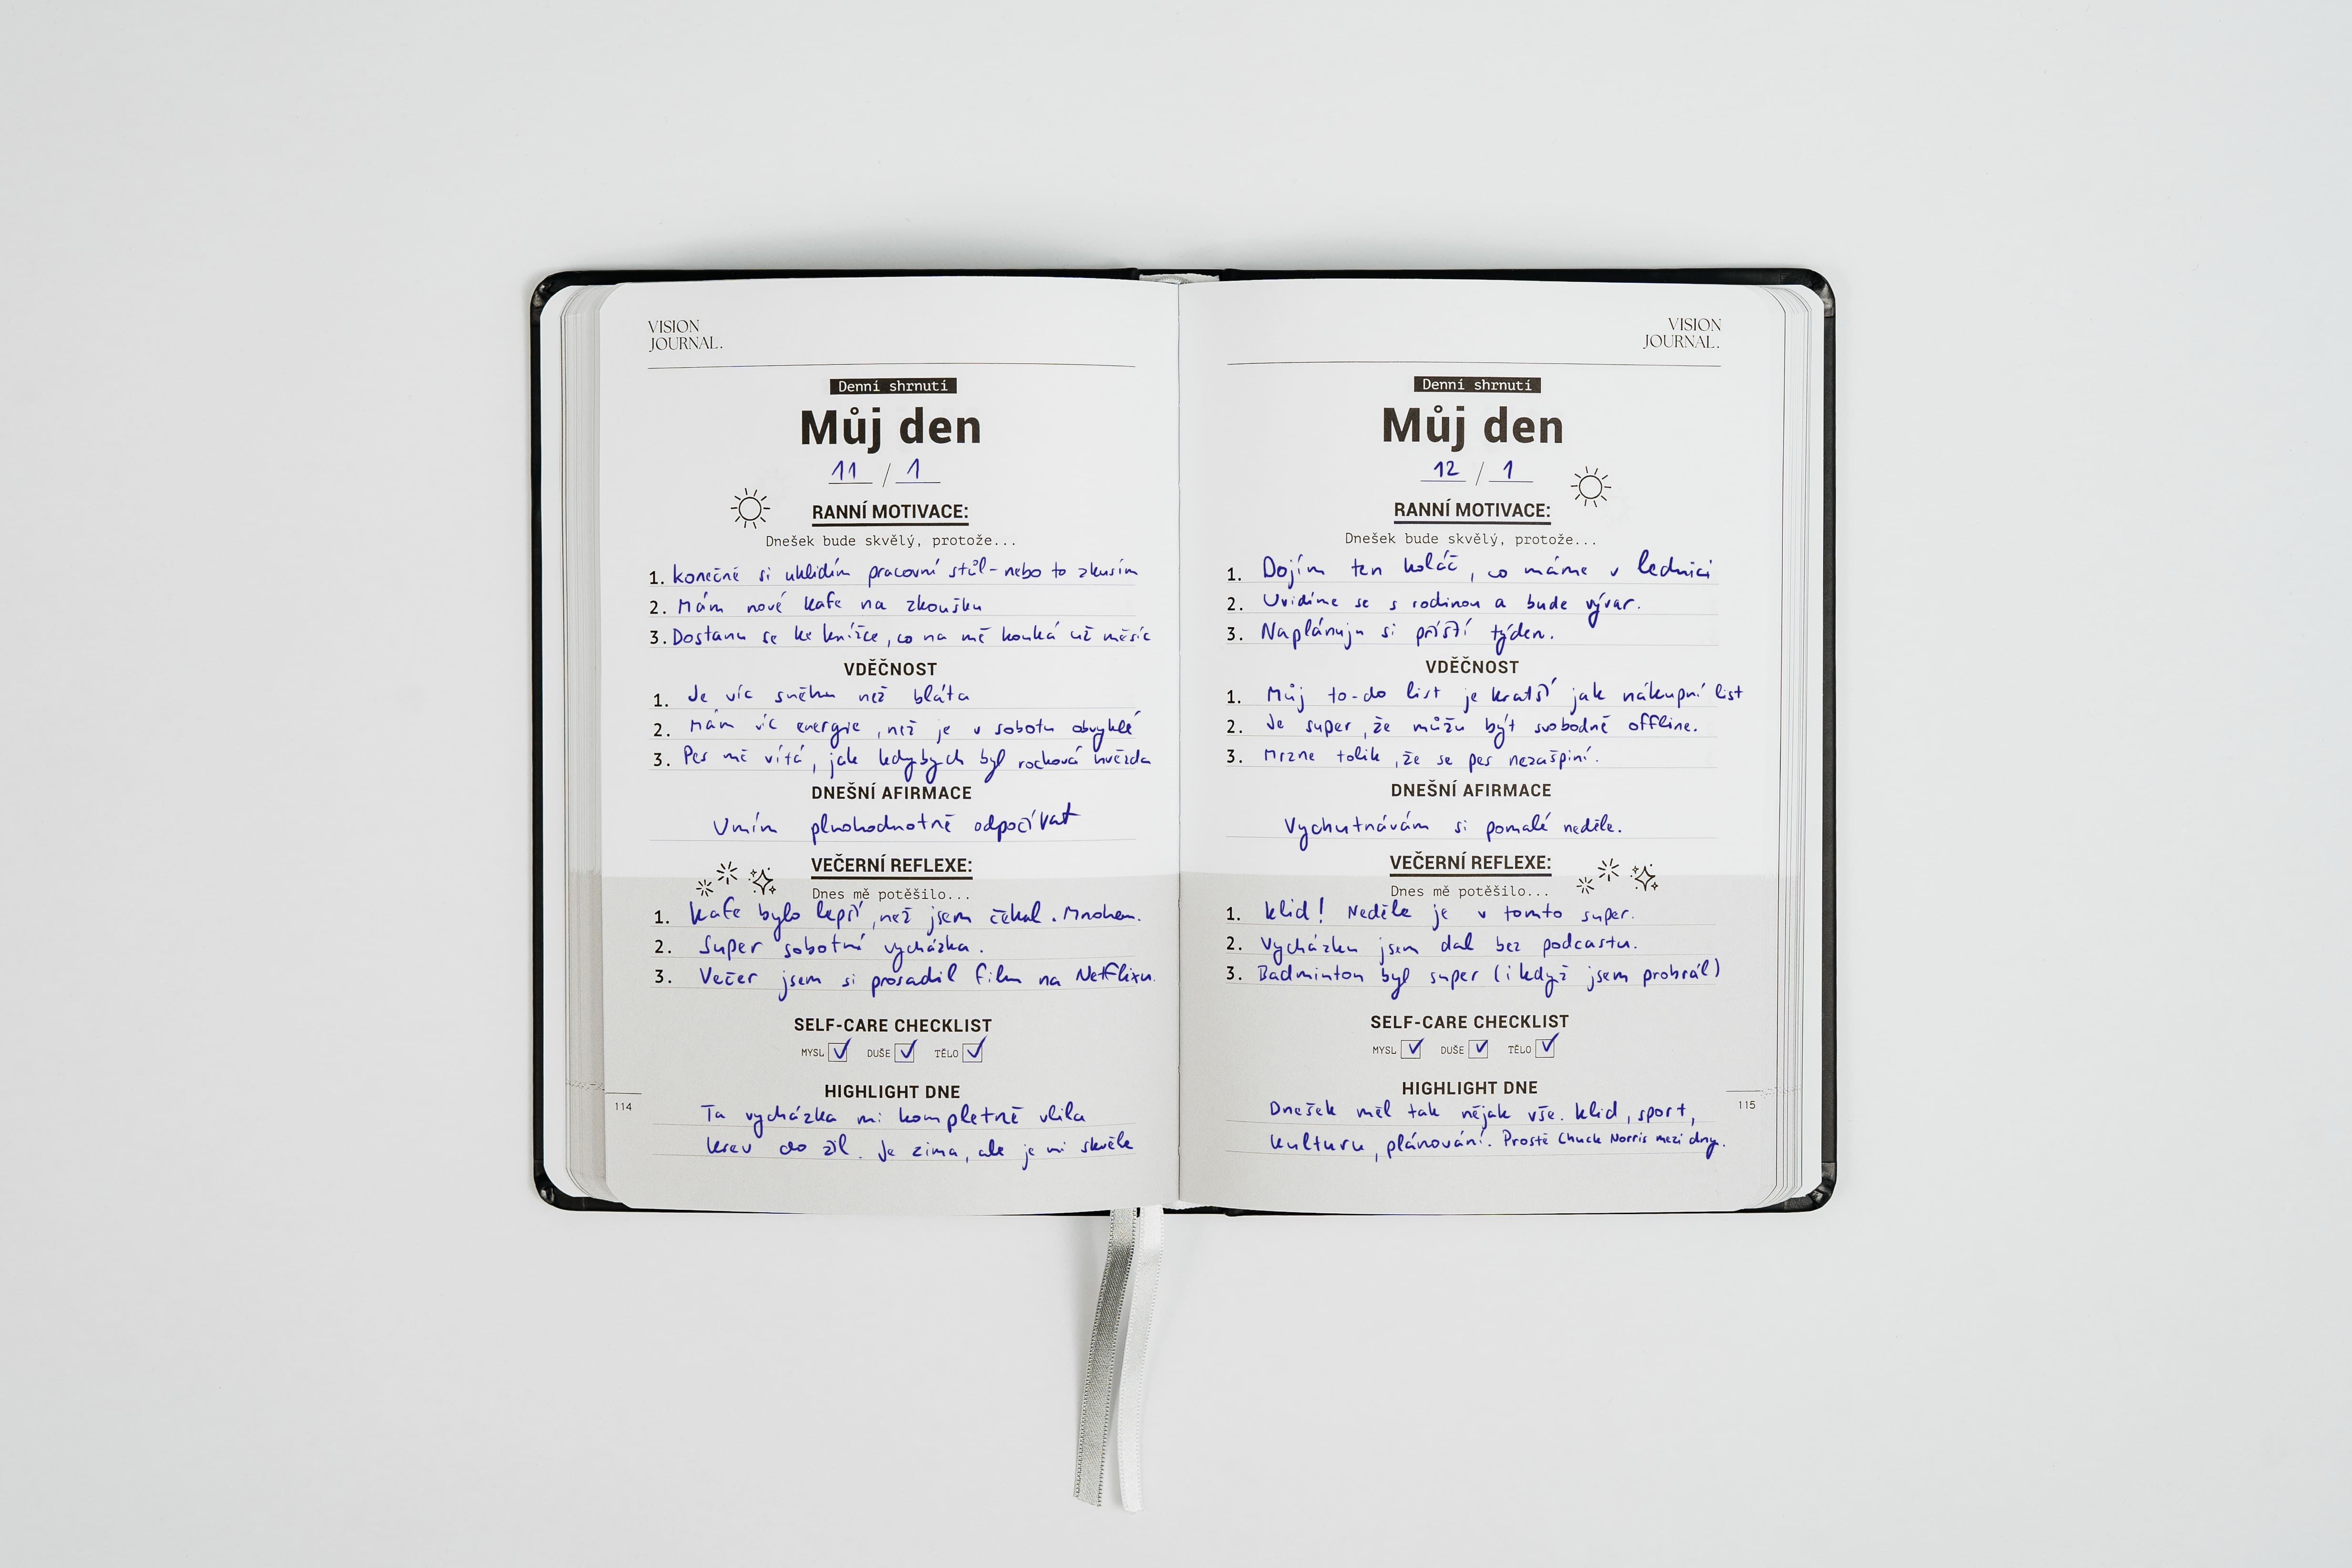 VISION
JOURNAL.
Denní shrnutí
Můj den
11 / 1
RANNÍ MOTIVACE:
Dnešek bude skvělý, protože...
1. konečně si uklidím pracovní stůl - nebo to zkusím
2. Mám nové kafe na zkoušku
3. Dostanu se ke knížce, co na mě kouká už měsíc
VDĚČNOST
1. Je víc sněhu než bláta
2. Mám víc energie, než je v sobotu obvyklé
3. Pes mě vítá, jak kdybych byl rocková hvězda
DNEŠNÍ AFIRMACE
Umím plnohodnotně odpočívat
VEČERNÍ REFLEXE:
Dnes mě potěšilo...
1. Kafe bylo lepší, než jsem čekal. Mnohem.
2. Super sobotní vycházka.
3. Večer jsem si prosadil film na Netflixu.
SELF-CARE CHECKLIST
MYSL DUŠE TĚLO
HIGHLIGHT DNE
Ta vycházka mi kompletně vlila
krev do žil. Je zima, ale je mi skvěle
114
VISION
JOURNAL.
Denní shrnutí
Můj den
12 / 1
RANNÍ MOTIVACE:
Dnešek bude skvělý, protože...
1. Dojím ten koláč, co máme v lednici
2. Uvidíme se s rodinou a bude vývar.
3. Naplánuju si příští týden.
VDĚČNOST
1. Můj to-do list je kratší jak nákupní list
2. Je super, že můžu být svobodně offline.
3. Mrzne tolik, že se pes nezašpiní.
DNEŠNÍ AFIRMACE
Vychutnávám si pomalé neděle.
VEČERNÍ REFLEXE:
Dnes mě potěšilo...
1. Klid! Neděle je v tomto super.
2. Vycházku jsem dal bez podcastu.
3. Badminton byl super (i když jsem prohrál)
SELF-CARE CHECKLIST
MYSL DUŠE TĚLO
HIGHLIGHT DNE
Dnešek měl tak nějak vše. Klid, sport,
kulturu, plánování. Prostě Chuck Norris mezi dny.
115